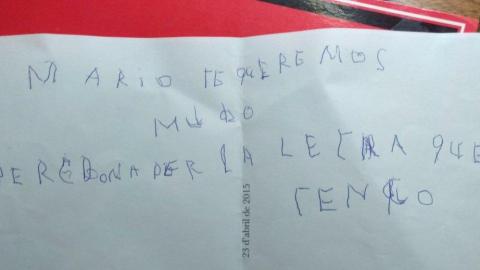 MARIO TEQUEREMOS
MUJO
PEREDONADER LA LETRA QUE
TENGO
23 d'abril de 2015